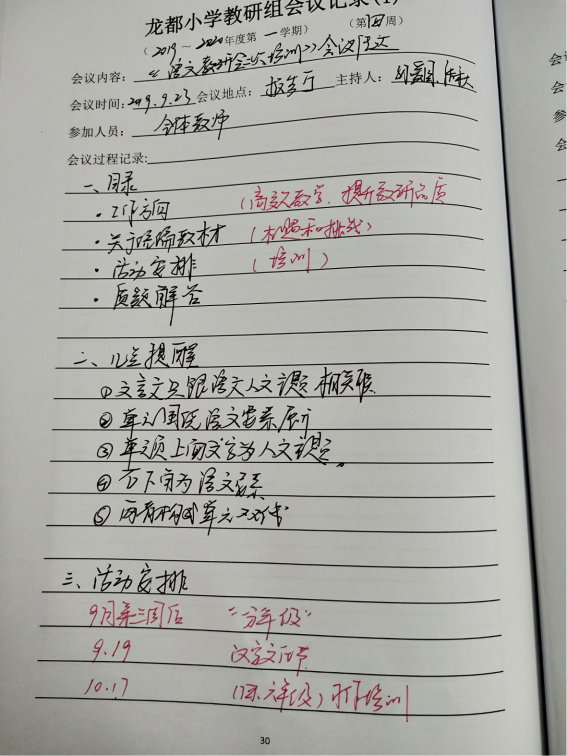 龙都小学教研组会议记录(1)
(2019~2020年度第一学期) (第四周)
会议内容:《语文教研会议培训》会议传达
会议时间:2019.9.23 会议地点: 报告厅 主持人:
参加人员: 全体教师
会议过程记录:
一、目录
·工作方向 (高效教学,提升教研品质
·关于统编教材 (机遇和挑战)
·活动安排 (培训)
·质疑解答
二、几点提醒
①文言文只跟语文人文主题相关联
②单元围绕语文要素展开
③单元页上面文字为人文主题。
④右下角为语文要素
⑤两者构成单元双线
三、活动安排
9月第三周后 "分年级"
9.19 汉字文化节
10.17 级)
30